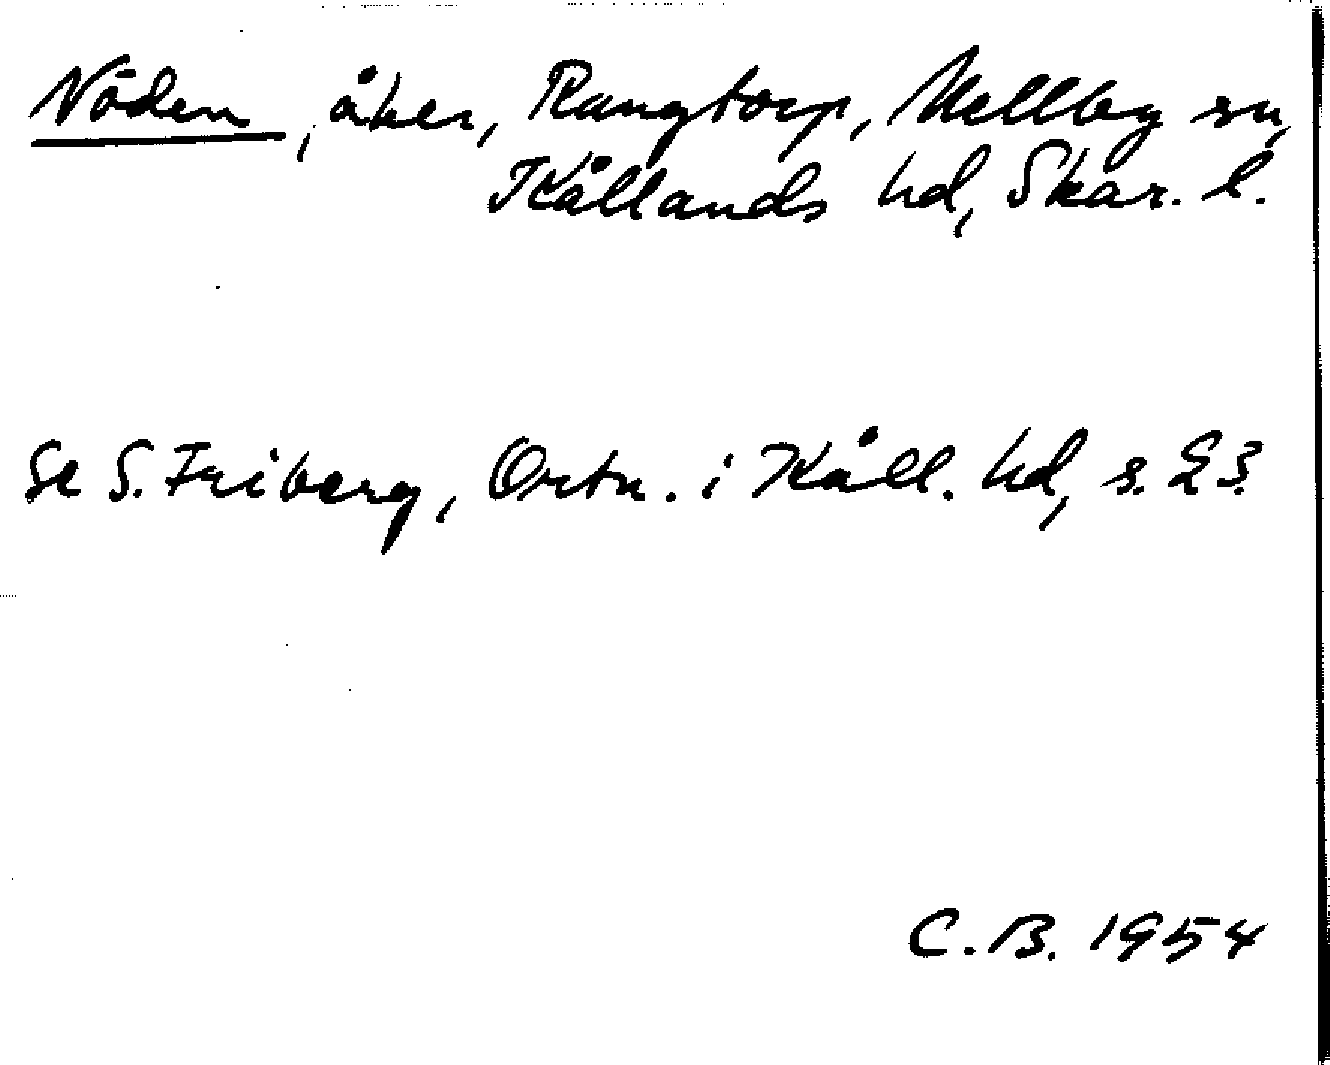 Nöden, åker, Rangtorp, Mellby sn,
Kållands hd, Skar. l.
Se S. Friberg, Ortn. i Kåll. hd, s. 23.
C.B. 1954